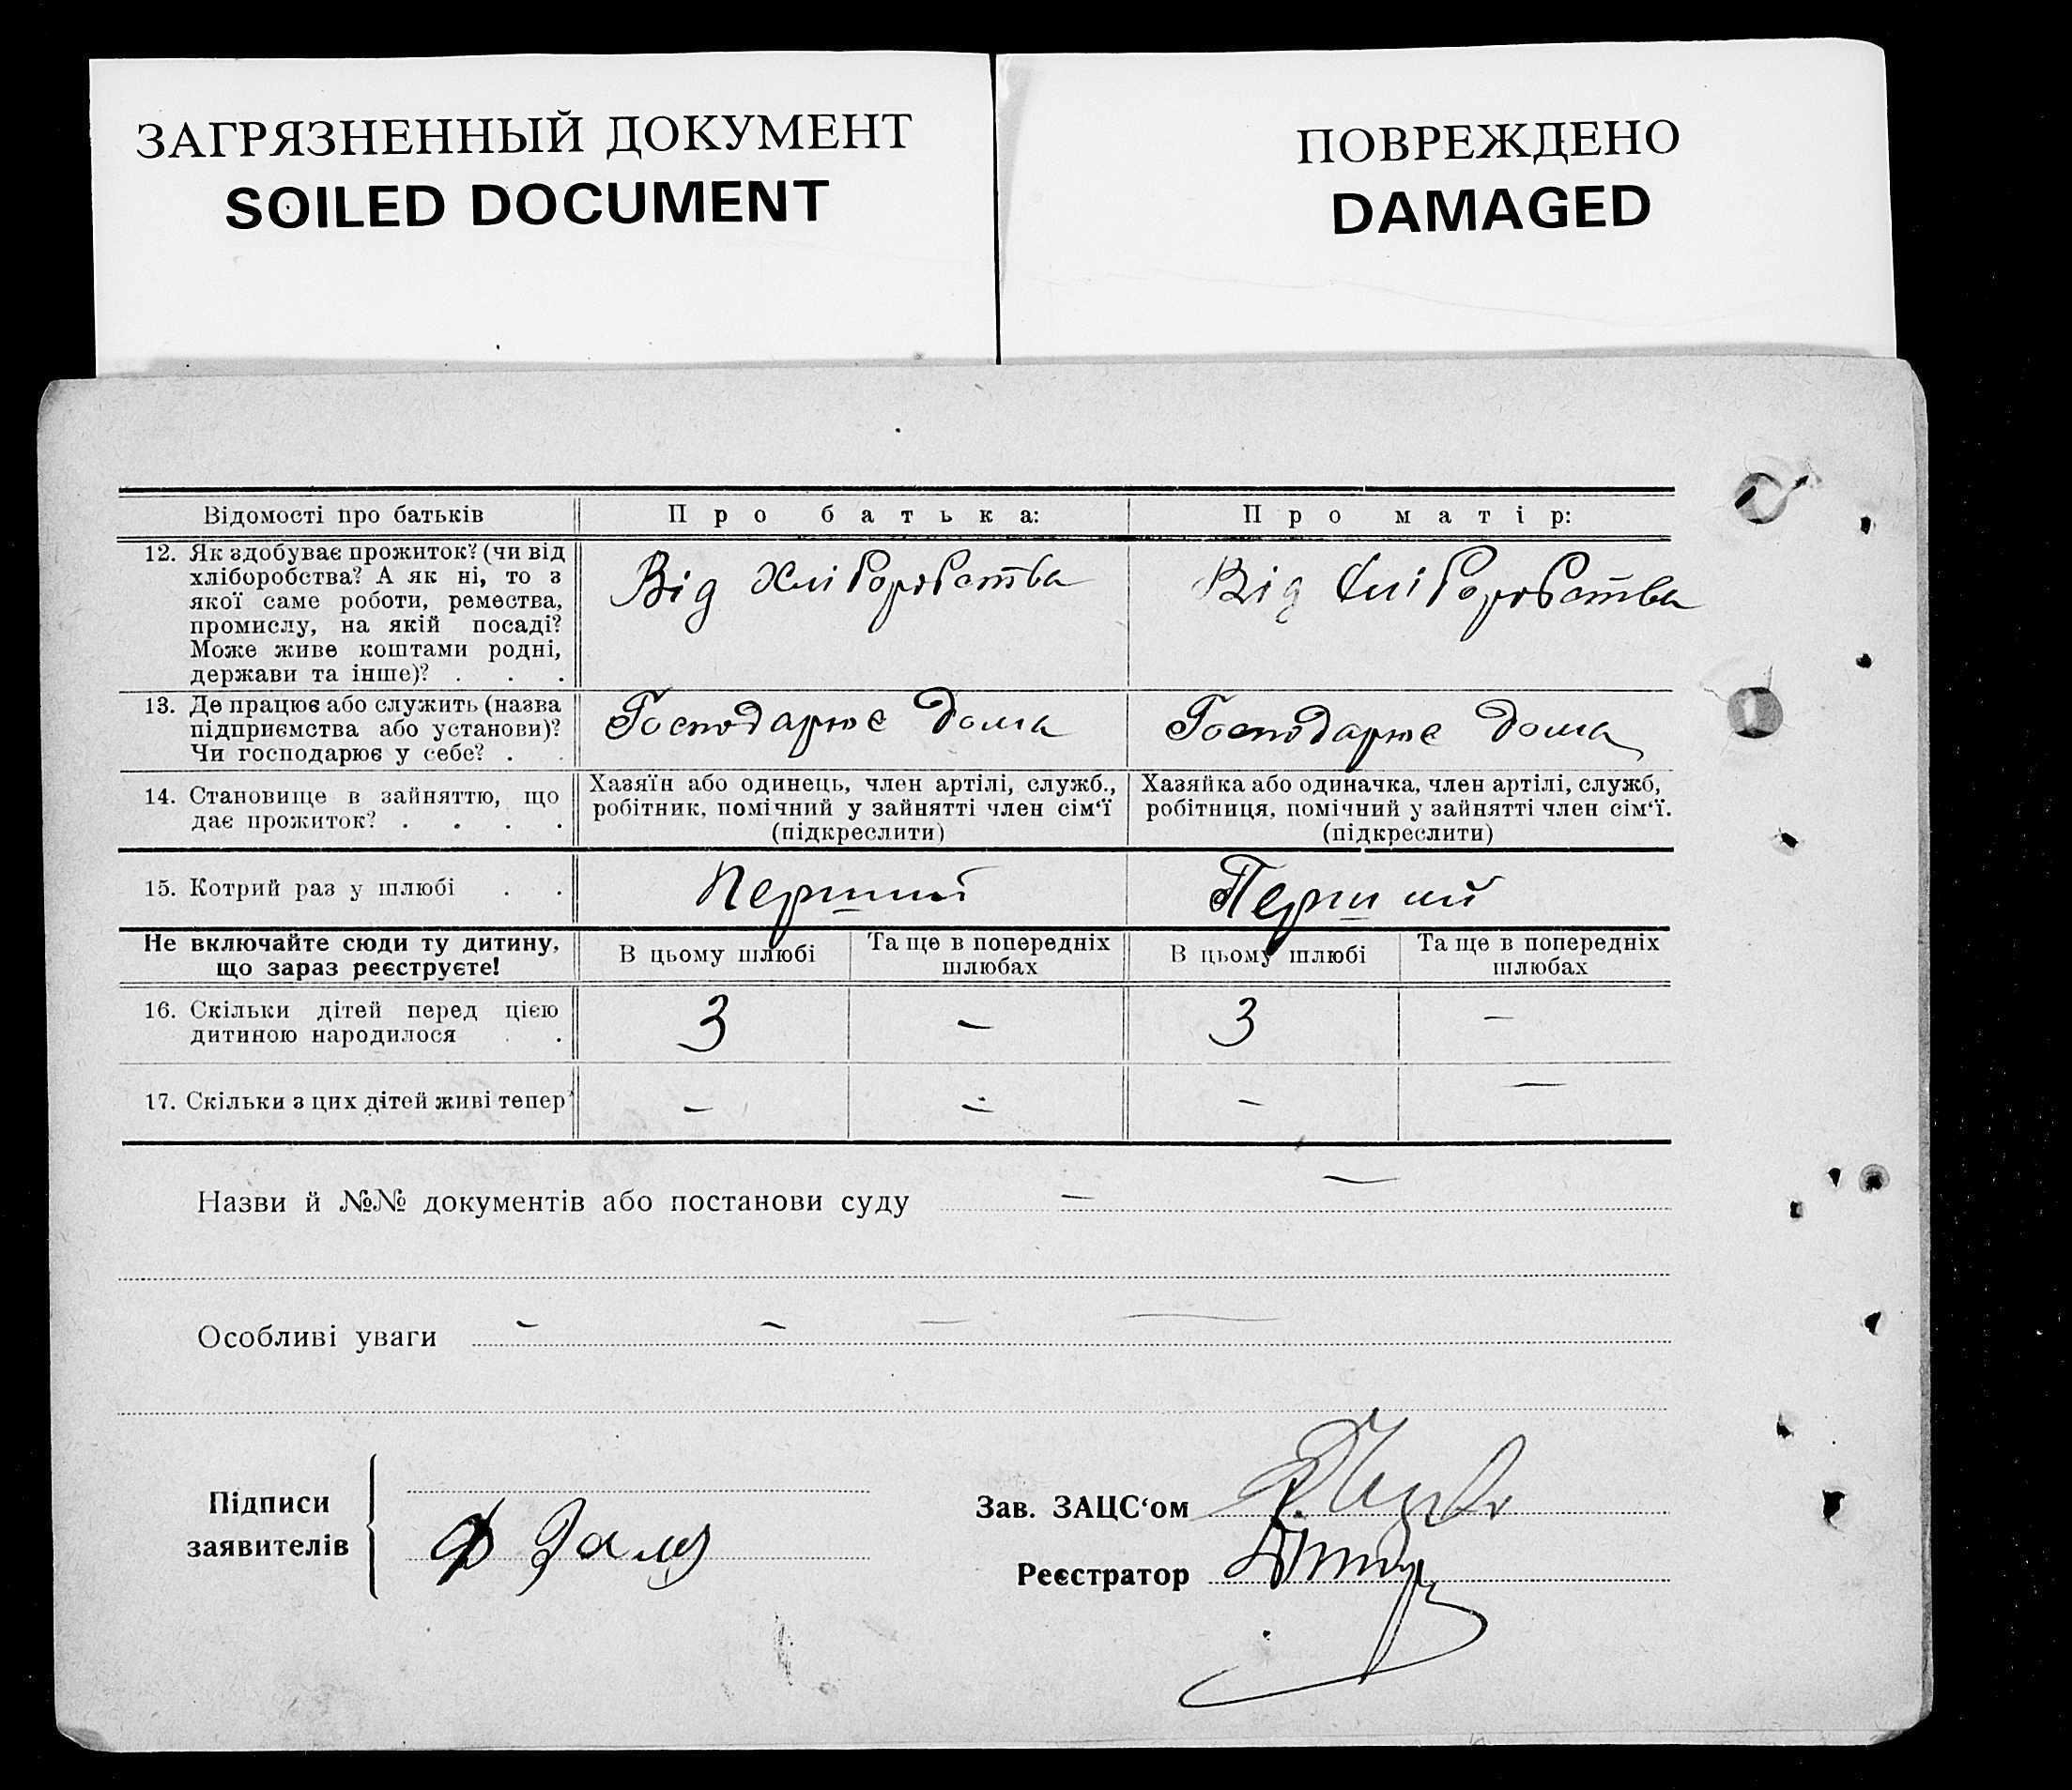 ЗАГРЯЗНЕННЫЙ ДОКУМЕНТ
SOILED DOCUMENT
ПОВРЕЖДЕНО
DAMAGED
Відомості про батьків Про батька: Про матір:
12. Як здобуває прожиток? (чи від
хліборобства? А як ні, то з
якої саме роботи, ремества,
промислу, на якій посаді?
Може живе коштами родні,
держави та інше)? . . .
Від Хліборобства
Від Хліборобства
13. Де працює або служить (назва
підприємства або установи)?
Чи господарює у себе? . .
Господарює дома
Господарює дома
14. Становище в зайняттю, що
дає прожиток? . . . .
Хазяїн або одинець, член артілі, служб.,
робітник, помічний у зайнятті член сім‘ї
(підкреслити)
Хазяйка або одиначка, член артілі, служб,
робітниця, помічний у зайнятті член сім‘ї.
(підкреслити)
15. Котрий раз у шлюбі . . Перший Перший
Не включайте сюди ту дитину,
що зараз реєструєте!
В цьому шлюбі
Та ще в попередніх
шлюбах
В цьому шлюбі
Та ще в попередніх
шлюбах
16. Скільки дітей перед цією
дитиною народилося . .
3 – 3 –
17. Скільки з цих дітей живі тепер? – – – –
Назви й №№ документів або постанови суду – –
Особливі уваги – – – –
Підписи
заявителів
Ф
Зав. ЗАЦС‘ом
Реєстратор